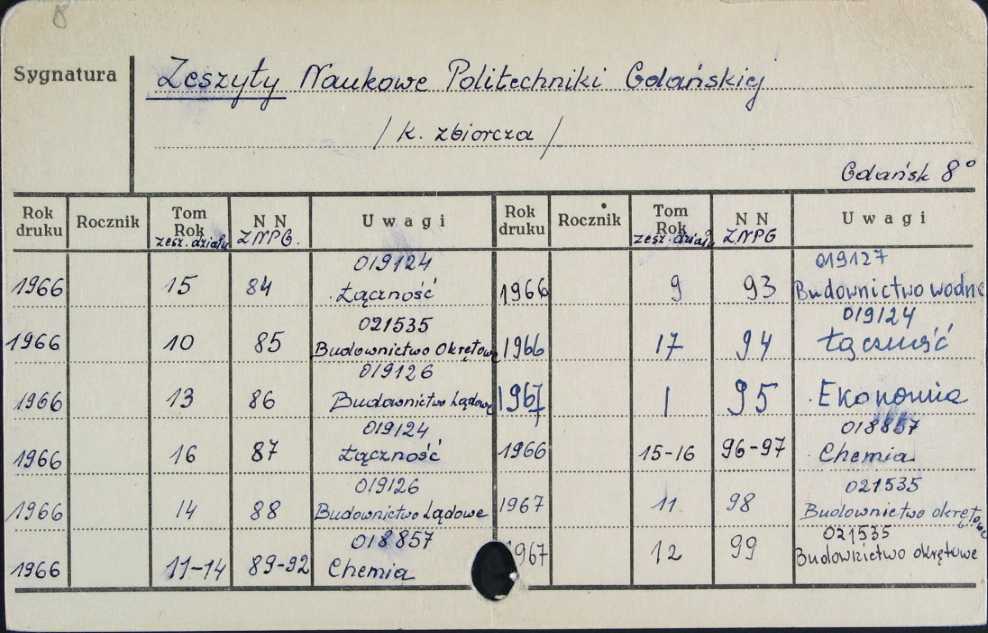 8
Sygnatura
Zeszyty Naukowe Politechniki Gdańskiej
/ k. zbiorcza /
Gdańsk 8°
Rok druku Rocznik Tom Rok zesz. działu N N ZNPG. Uwagi Rok druku Rocznik Tom Rok zesz. działu N N ZNPG Uwagi
019124 019127
1966 15 84 Łączność 1966 9 93 Budownictwo wodne
021535 019124
1966 10 85 Budownictwo Okrętowe 1966 17 94 Łączność
019126
1966 13 86 Budownictwo Lądowe 1967 1 95 Ekonomia
019124 018857
1966 16 87 Łączność 1966 15-16 96-97 Chemia
019126 021535
1966 14 88 Budownictwo Lądowe 1967 11 98 Budownictwo okrętowe
018857 021535
1966 11-14 89-92 Chemia 1967 12 99 Budownictwo okrętowe